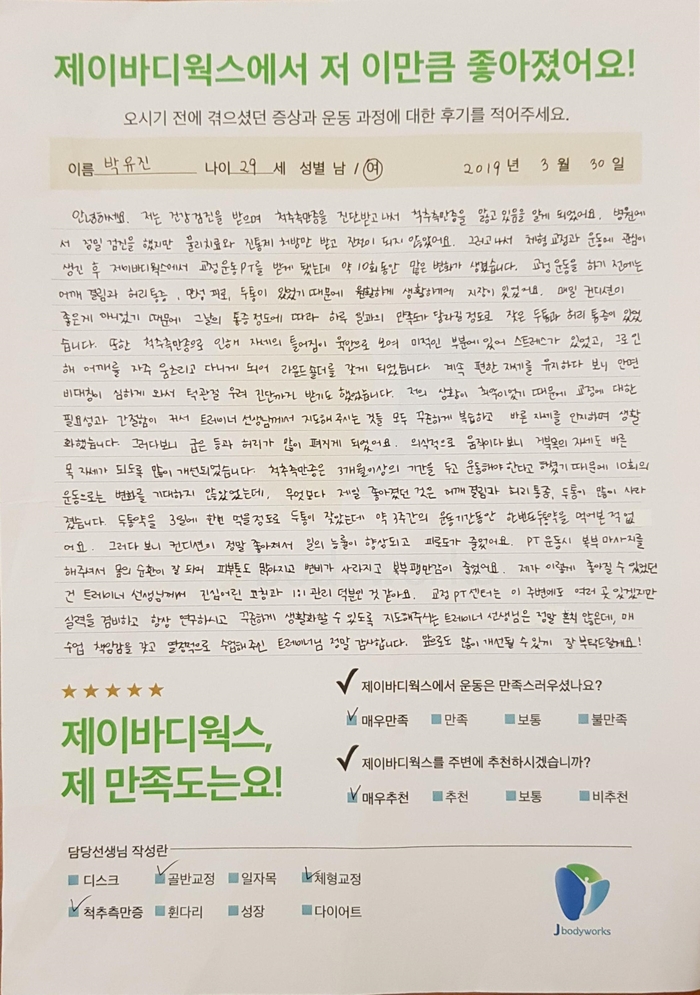 제이바디웍스에서 저 이만큼 좋아졌어요!
오시기 전에 겪으셨던 증상과 운동 과정에 대한 후기를 적어주세요.
이름 박유진 나이 29 세 성별 남 / 여 2019 년 3 월 30 일
안녕하세요. 저는 건강검진을 받으며 척추측만증을 진단받고 나서 척추측만증을 앓고 있음을 알게 되었어요. 병원에
서 정밀 검진을 했지만 물리치료와 진통제 처방만 받고 진전이 되지 않았어요. 그러고나서 체형 교정과 운동에 관심이
생긴 후 제이바디웍스에서 교정운동PT를 받게 됐는데 약 10회동안 많은 변화가 생겼습니다. 교정 운동을 하기 전에는
어깨 결림과 허리통증, 만성 피로, 두통이 있었기 때문에 원활하게 생활하기에 지장이 있었어요. 매일 컨디션이
좋은게 아니었기 때문에 그날의 통증 정도에 따라 하루 일과의 만족도가 달라질 정도로 잦은 두통과 허리 통증이 있었
습니다. 또한 척추측만증으로 인해 자세의 틀어짐이 육안으로 보여 미적인 부분에 있어 스트레스가 있었고, 그로 인
해 어깨를 자주 움츠리고 다니게 되어 라운드숄더를 갖게 되었습니다. 계속 편한 자세를 유지하다 보니 안면
비대칭이 심하게 와서 턱관절 우려 진단까지 받기도 했었습니다. 저의 상황이 최악이었기 때문에 교정에 대한
필요성과 간절함이 커서 트레이너 선생님께서 지도해 주시는 것들 모두 꾸준하게 복습하고 바른 자세를 인지하며 생활
화했습니다. 그러다보니 굽은 등과 허리가 많이 펴지게 되었어요. 의식적으로 움직이다 보니 거북목의 자세도 바른
목 자세가 되도록 많이 개선되었습니다. 척추측만증은 3개월이상의 기간을 두고 운동해야 한다고 하셨기 때문에 10회의
운동으로는 변화를 기대하지 않았었는데, 무엇보다 제일 좋아졌던 것은 어깨 결림과 허리 통증, 두통이 많이 사라
졌습니다. 두통약을 3일에 한번 먹을정도로 두통이 잦았는데 약 3주간의 운동기간동안 한번도 두통약을 먹어본 적 없
어요. 그러다 보니 컨디션이 정말 좋아져서 일의 능률이 향상되고 피로도가 줄었어요. PT 운동시 복부 마사지를
해주셔서 몸의 순환이 잘 되며 피부톤도 맑아지고 변비가 사라지고 복부 팽만감이 줄었어요. 제가 이렇게 좋아질 수 있었던
건 트레이너 선생님께서 진심어린 코칭과 1:1 관리 덕분인 것 같아요. 교정 PT센터는 이 주변에도 여러 곳 있겠지만
실력을 겸비하고 항상 연구하시고 꾸준하게 생활화할 수 있도록 지도해주시는 트레이너 선생님은 정말 흔치 않은데, 매
수업 책임감을 갖고 열정적으로 수업해주신 트레이너님 정말 감사합니다. 앞으로도 많이 개선될 수 있게 잘 부탁드릴게요!
제이바디웍스에서 운동은 만족스러우셨나요?
매우만족 만족 보통 불만족
제이바디웍스,
제 만족도는요!
제이바디웍스를 주변에 추천하시겠습니까?
매우추천 추천 보통 비추천
담당선생님 작성란
디스크 골반교정 일자목 체형교정
척추측만증 휜다리 성장 다이어트
Jbodyworks